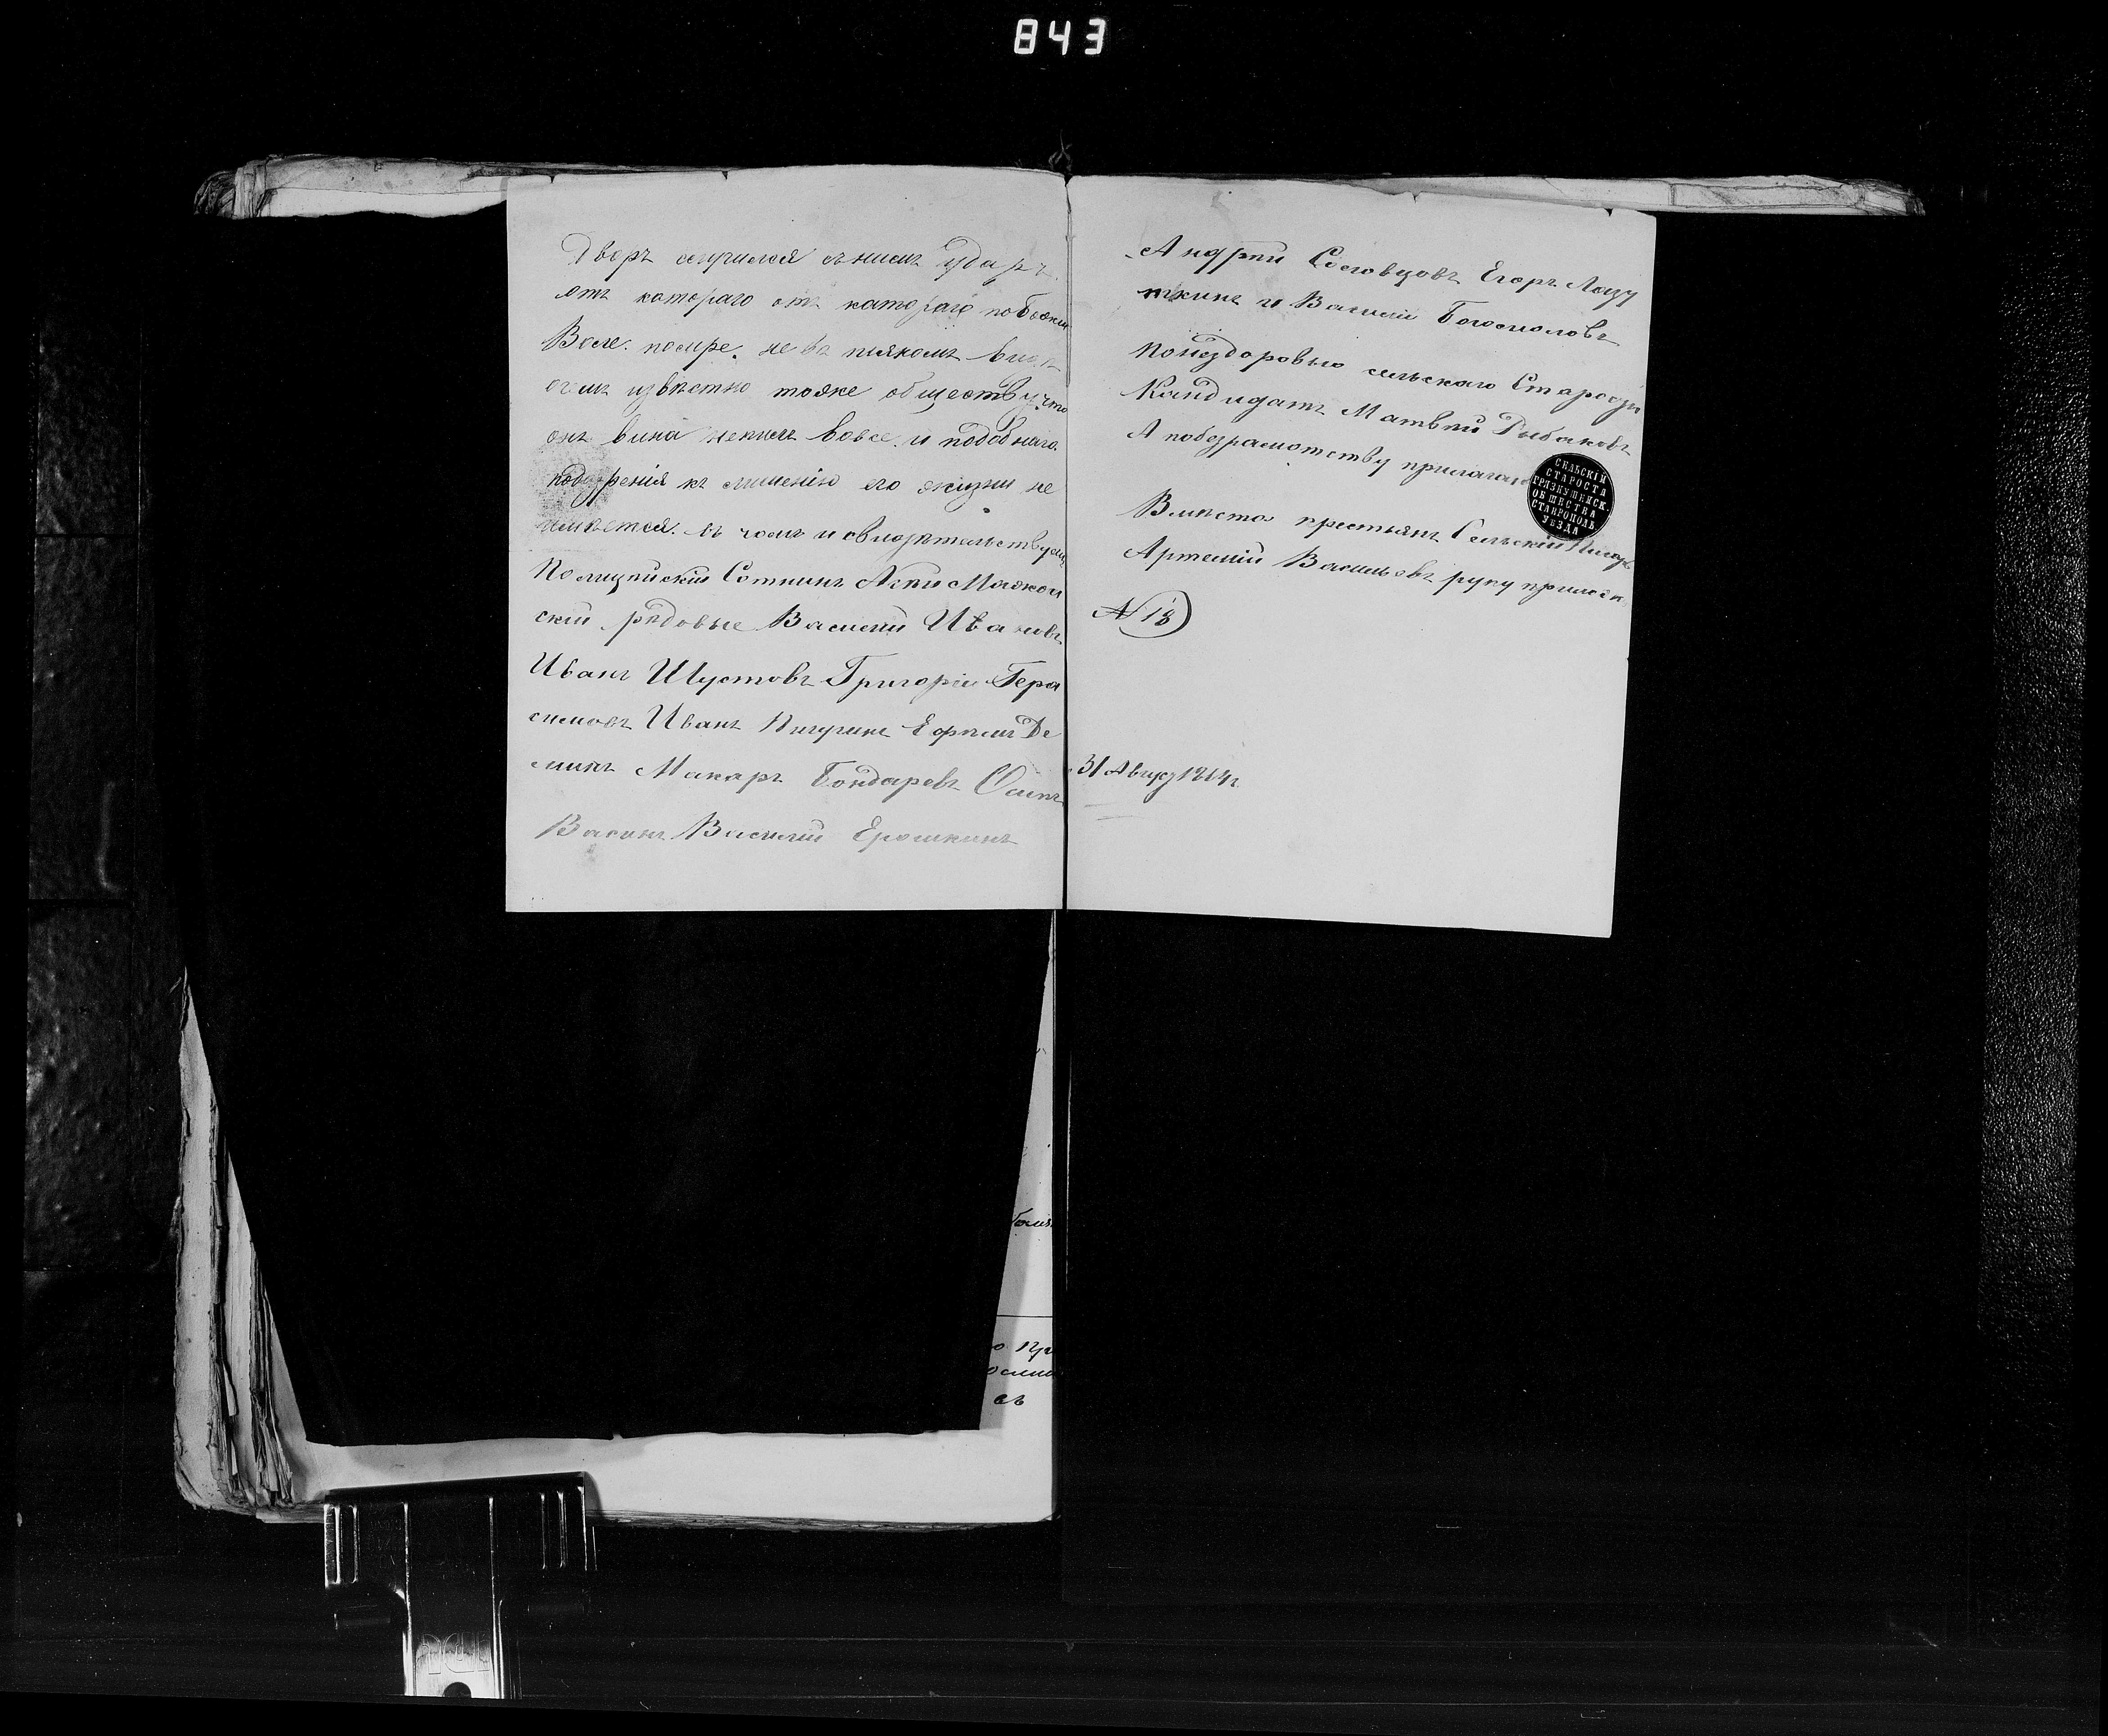 843
Дворъ случился съ нимъ ударъ
отъ котораго отъ катораго по Божи
Воле. помре. не въ пьяномъ виде
очемъ извѣстно тоже обществу, что
онъ вина непилъ вовсе. и подобнаго.
подозренія къ лишенію его жизни не
имѣется. въ чомъ и свидѣтельствуемъ
Полицѣйскій Сотникъ
скій рядовые Василий Ивановъ
Иванъ Шустовъ Григорій Гера
симовъ Иванъ Пичугинъ Ефимъ Де
минъ Макаръ Бондаревъ Осипъ
Васинъ Василий Ерошкинъ
Андрѣй Егоръ Лазу
ткинъ и Василий Богомоловъ
Понездоровью сельскаго Старосты
Кандидатъ Матвѣй Рыбаковъ
А побезграмотству прилагаю
СЕЛЬСКІЙ
СТАРОСТА
ГРЯЗНУШЕНСК.
ОБЩЕСТВА
СТАВРОПОЛЬ.
УѢЗДА
Вмѣсто крестьянъ Сельскій Писарь
Артемий Васильевъ руку прилож
№ 18
31 Август
болѣ
о
съ